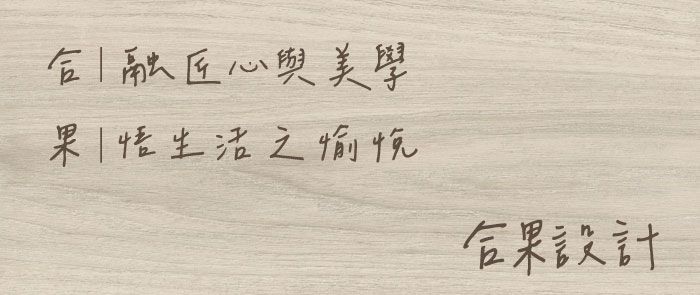 合|融匠心與美學
果|悟生活之愉悅
合果設計